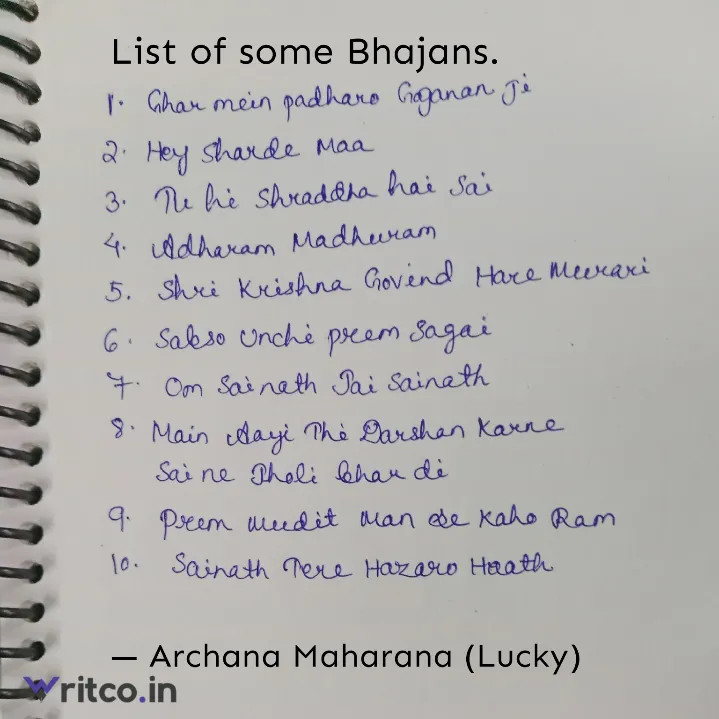 List of some Bhajans.
1. Ghar mein padharo Gajanan Ji
2. Hey Sharde Maa
3. Tu hi Shraddha hai Sai
4. Adharam Madhuram
5. Shri Krishna Govind Hare Murari
6. Sabso Unchi prem Sagai
7. Om Sainath Jai Sainath
8. Main Aayi Thi Darshan Karne
Sai ne Jholi bhar di
9. Prem mudit Man se Kaho Ram
10. Sainath Tere Hazaro Haath
— Archana Maharana (Lucky)
Writco.in